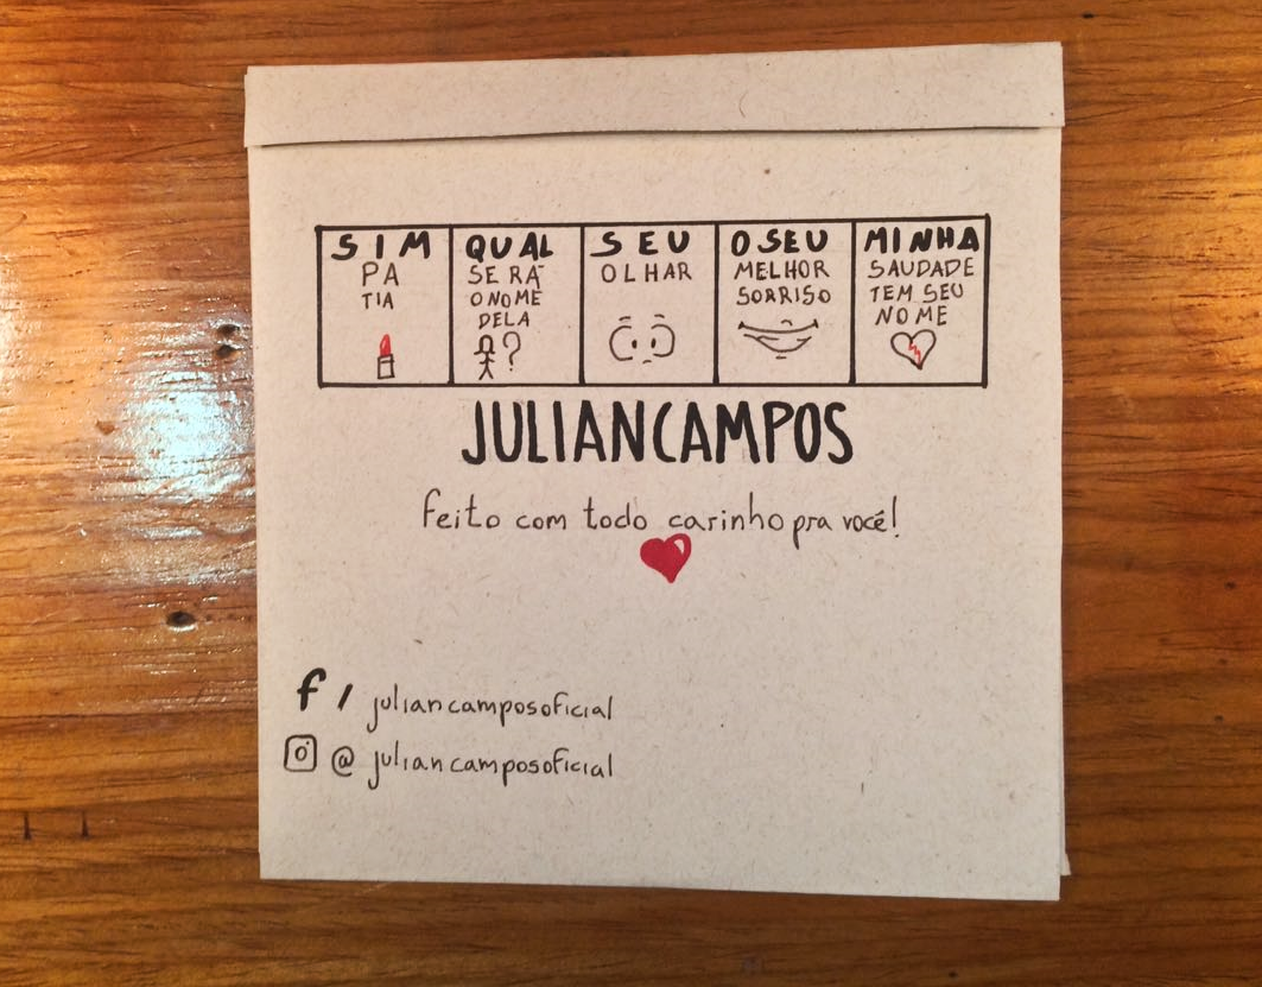 SIM
PA
TIA
QUAL
SERÁ
O NOME
DELA
?
SEU
OLHAR
O SEU
MELHOR
SORRISO
MINHA
SAUDADE
TEM SEU
NOME
JULIANCAMPOS
feito com todo carinho pra você!
f / juliancamposoficial
@ juliancamposoficial